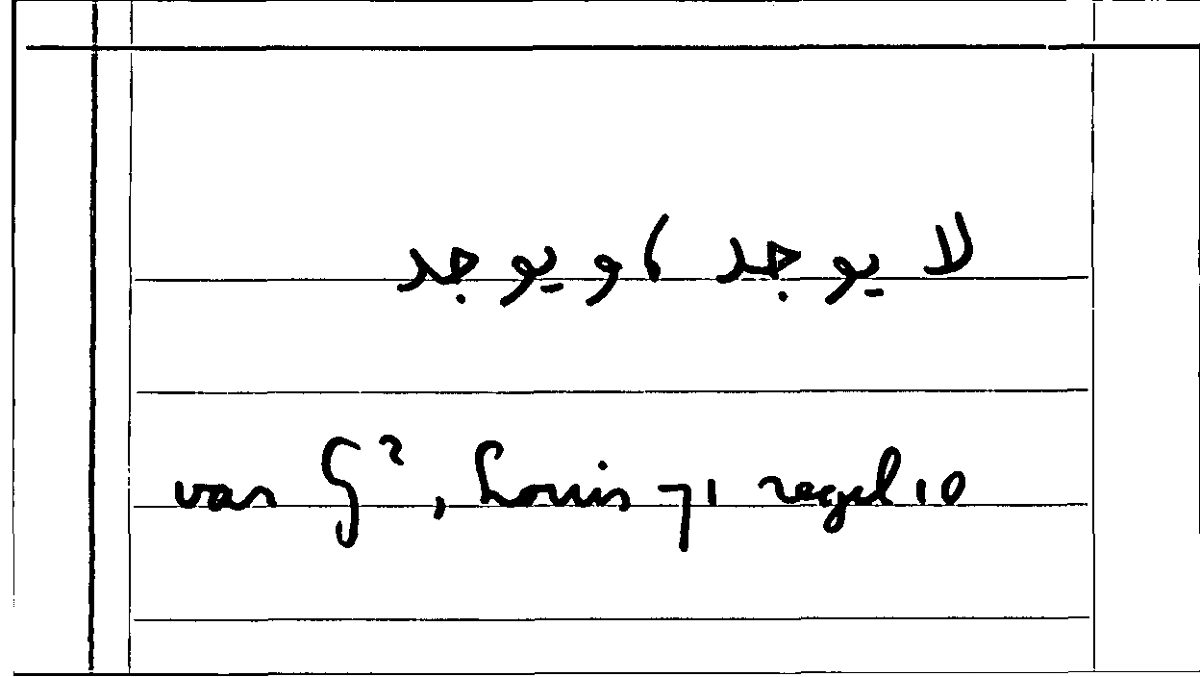 لا يوجد ، ويوجد
var G², Louis 71 regel 10